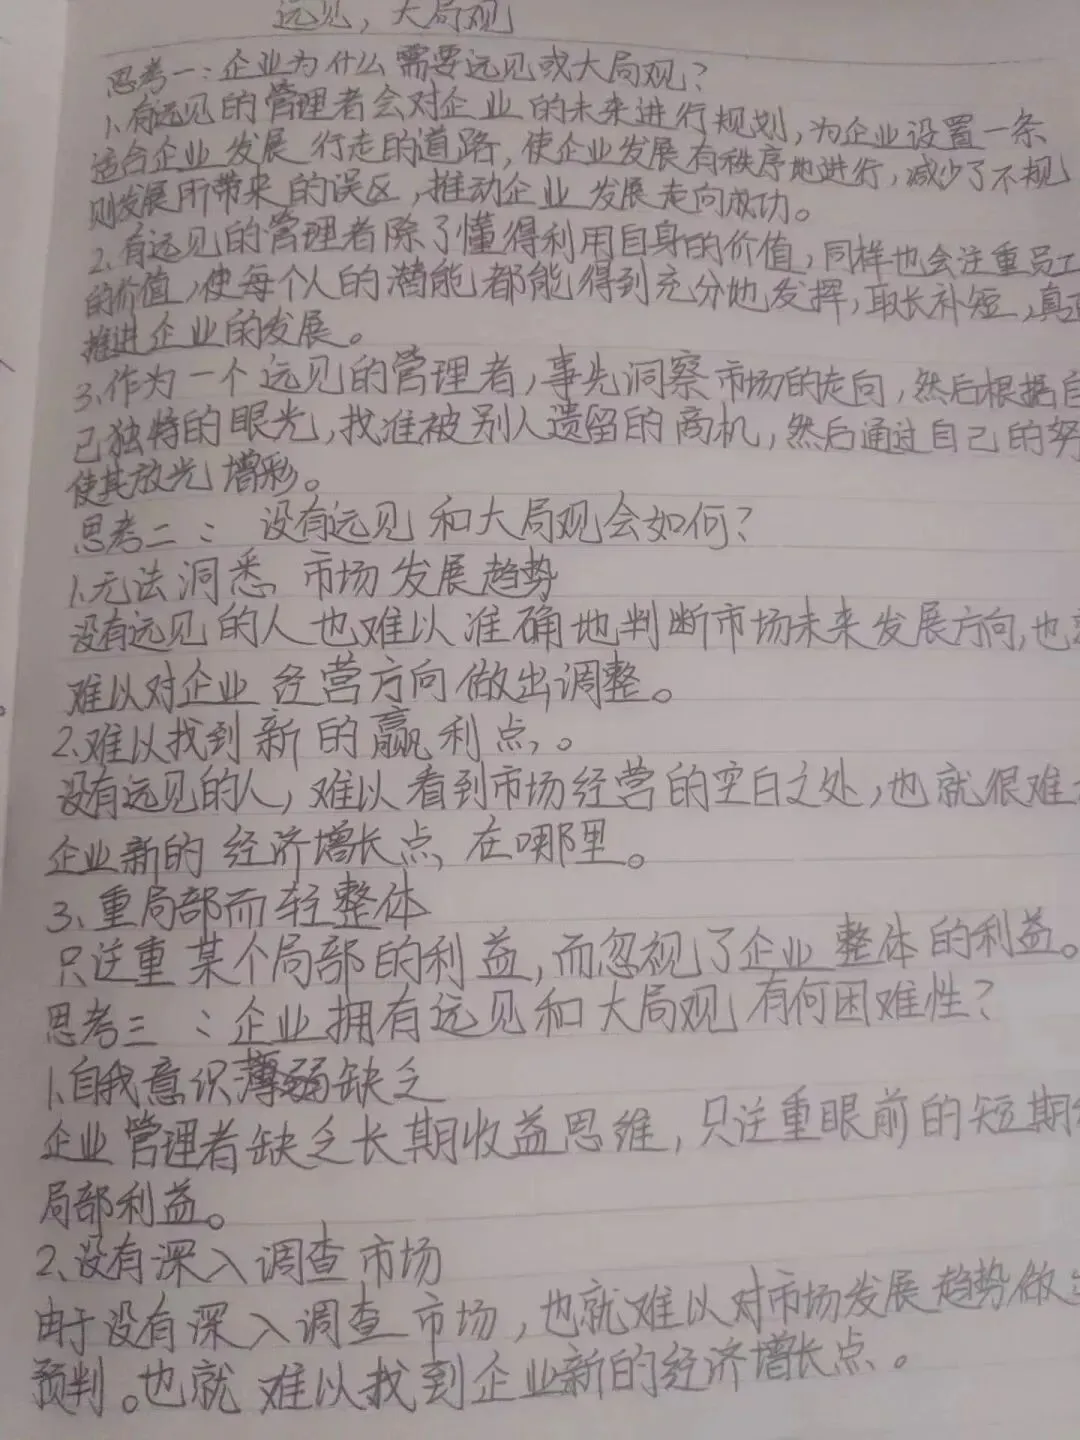 远见，大局观
思考一：企业为什么需要远见或大局观？
1、有远见的管理者会对企业的未来进行规划，为企业设置一条
适合企业发展行走的道路，使企业发展有秩序地进行，减少了不规
则发展所带来的误区，推动企业发展走向成功。
2、有远见的管理者除了懂得利用自身的价值，同样也会注重员工
的价值，使每个人的潜能都能得到充分地发挥，取长补短，真正
推进企业的发展。
3、作为一个远见的管理者，事先洞察市场的走向，然后根据自
己独特的眼光，找准被别人遗留的商机，然后通过自己的努
使其放光增彩。
思考二：没有远见和大局观会如何？
1、无法洞悉市场发展趋势
没有远见的人也难以准确地判断市场未来发展方向，也
难以对企业经营方向做出调整。
2、难以找到新的赢利点。
没有远见的人，难以看到市场经营的空白之处，也就很难
企业新的经济增长点在哪里。
3、重局部而轻整体
只注重某个局部的利益，而忽视了企业整体的利益。
思考三：企业拥有远见和大局观有何困难性？
1、自我意识薄弱缺乏
企业管理者缺乏长期收益思维，只注重眼前的短期
局部利益。
2、没有深入调查市场
由于没有深入调查市场，也就难以对市场发展趋势做出
预判。也就难以找到企业新的经济增长点。